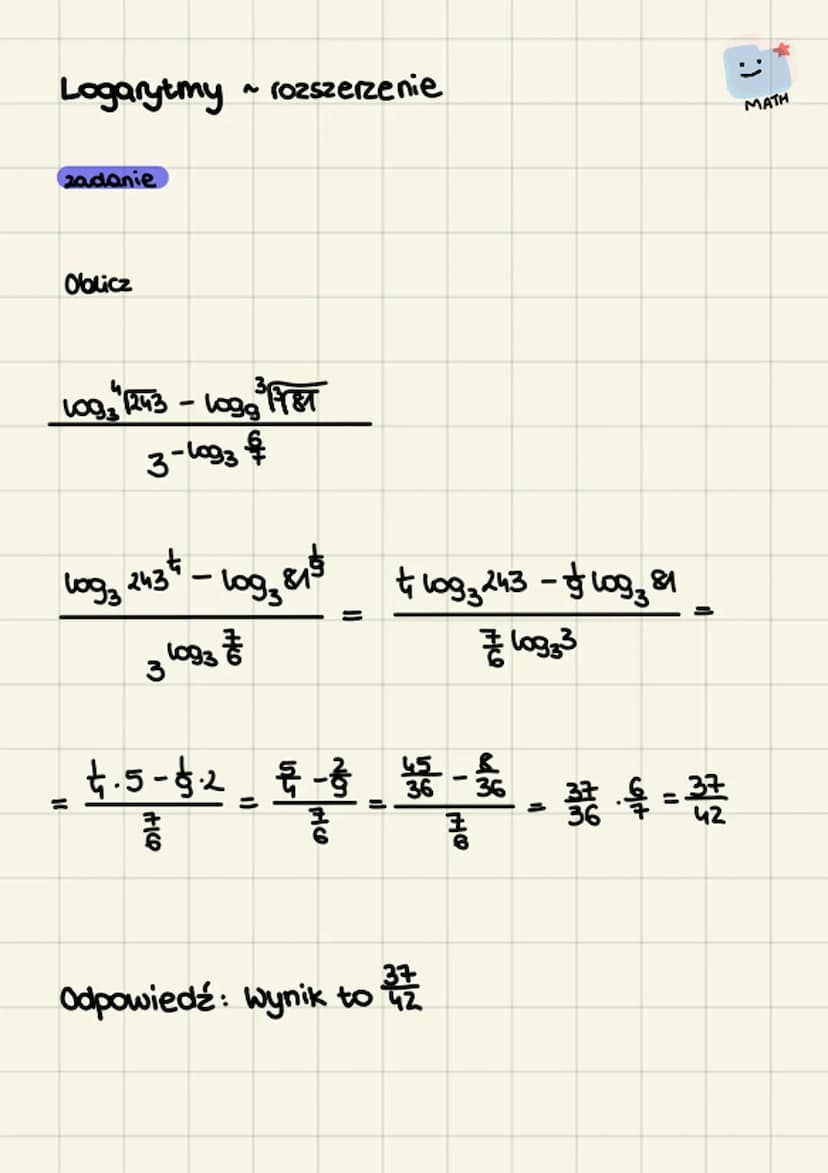 Logarytmy ~ rozszerzenie
MATH
zadanie
Oblicz
\frac{log_3 \sqrt[4]{243} - log_9 \sqrt[3]{\sqrt[3]{81}}}{3^{-log_3 \frac{6}{7}}}
\frac{log_3 243^{\frac{1}{4}} - log_3 81^{\frac{1}{9}}}{3^{log_3 \frac{7}{6}}} = \frac{\frac{1}{4} log_3 243 - \frac{1}{9} log_3 81}{\frac{7}{6} log_3 3} =
= \frac{\frac{1}{4} \cdot 5 - \frac{1}{9} \cdot 2}{\frac{7}{6}} = \frac{\frac{5}{4} - \frac{2}{9}}{\frac{7}{6}} = \frac{\frac{45}{36} - \frac{8}{36}}{\frac{7}{6}} = \frac{37}{36} \cdot \frac{6}{7} = \frac{37}{42}
Odpowiedź: Wynik to \frac{37}{42}